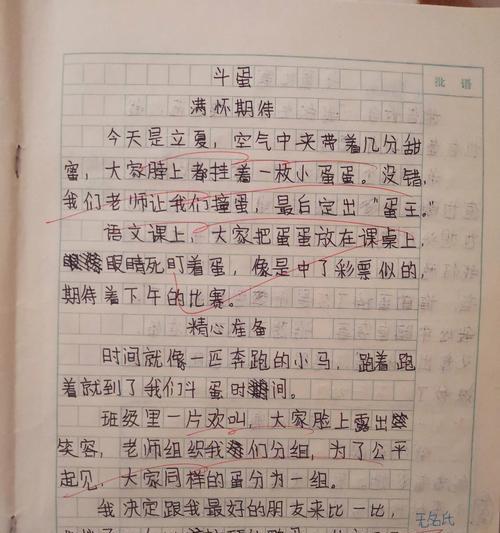 批语
斗蛋
满怀期待
今天是立夏，空气中夹带着几分甜
蜜，大家脖上都挂着一枚小蛋蛋。没错，
我们老师让我们撞蛋，最后定出“蛋王。”
语文课上，大家把蛋蛋放在课桌上
眼睛死盯着蛋，像是中了彩票似的，
期待着下午的比赛。
精心准备
时间就像一匹奔跑的小马，跑着跑
着就到了我们斗蛋时间。
班级里一片欢叫，大家脸上露出
笑容，老师组织我们分组，为了公平
起见，大家同样的蛋分为一组。
我决定跟我最好的朋友来比一比，
无名氏